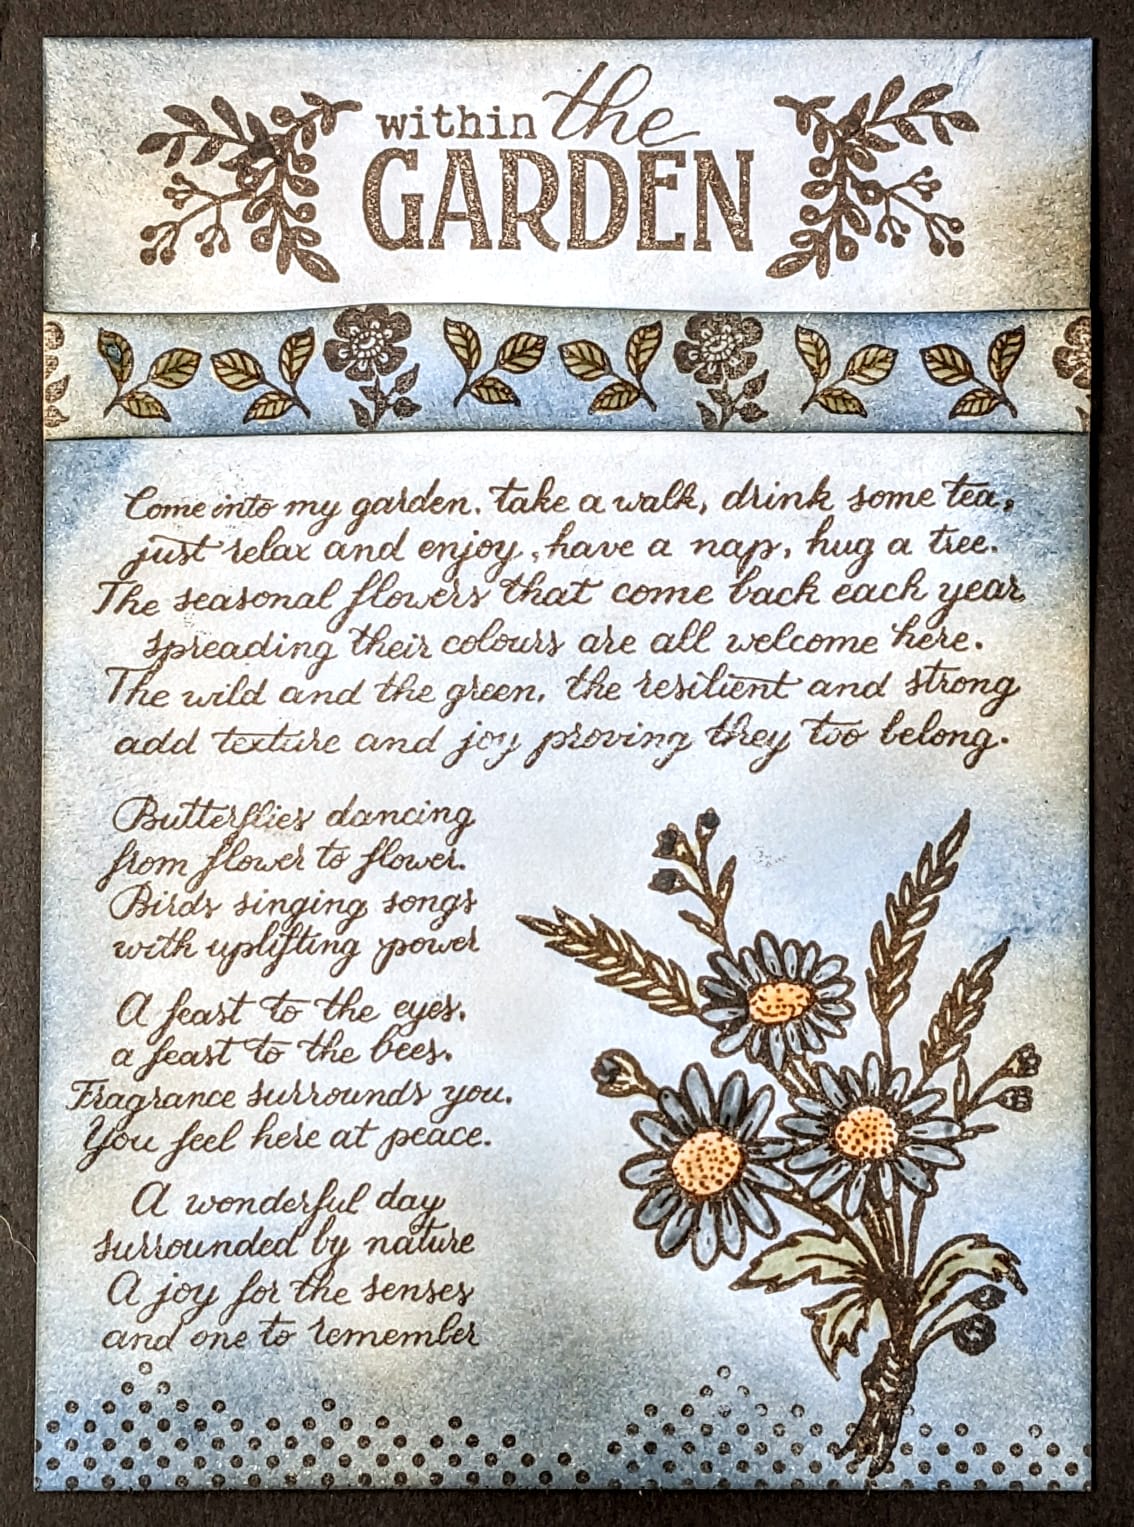 within the
GARDEN
Come into my garden. take a walk, drink some tea,
just relax and enjoy, have a nap, hug a tree.
The seasonal flowers that come back each year
spreading their colours are all welcome here.
The wild and the green, the resilient and strong
add texture and joy proving they too belong.
Butterflies dancing
from flower to flower.
Birds singing songs
with uplifting power
A feast to the eyes,
a feast to the bees.
Fragrance surrounds you.
You feel here at peace.
A wonderful day
surrounded by nature
A joy for the senses
and one to remember